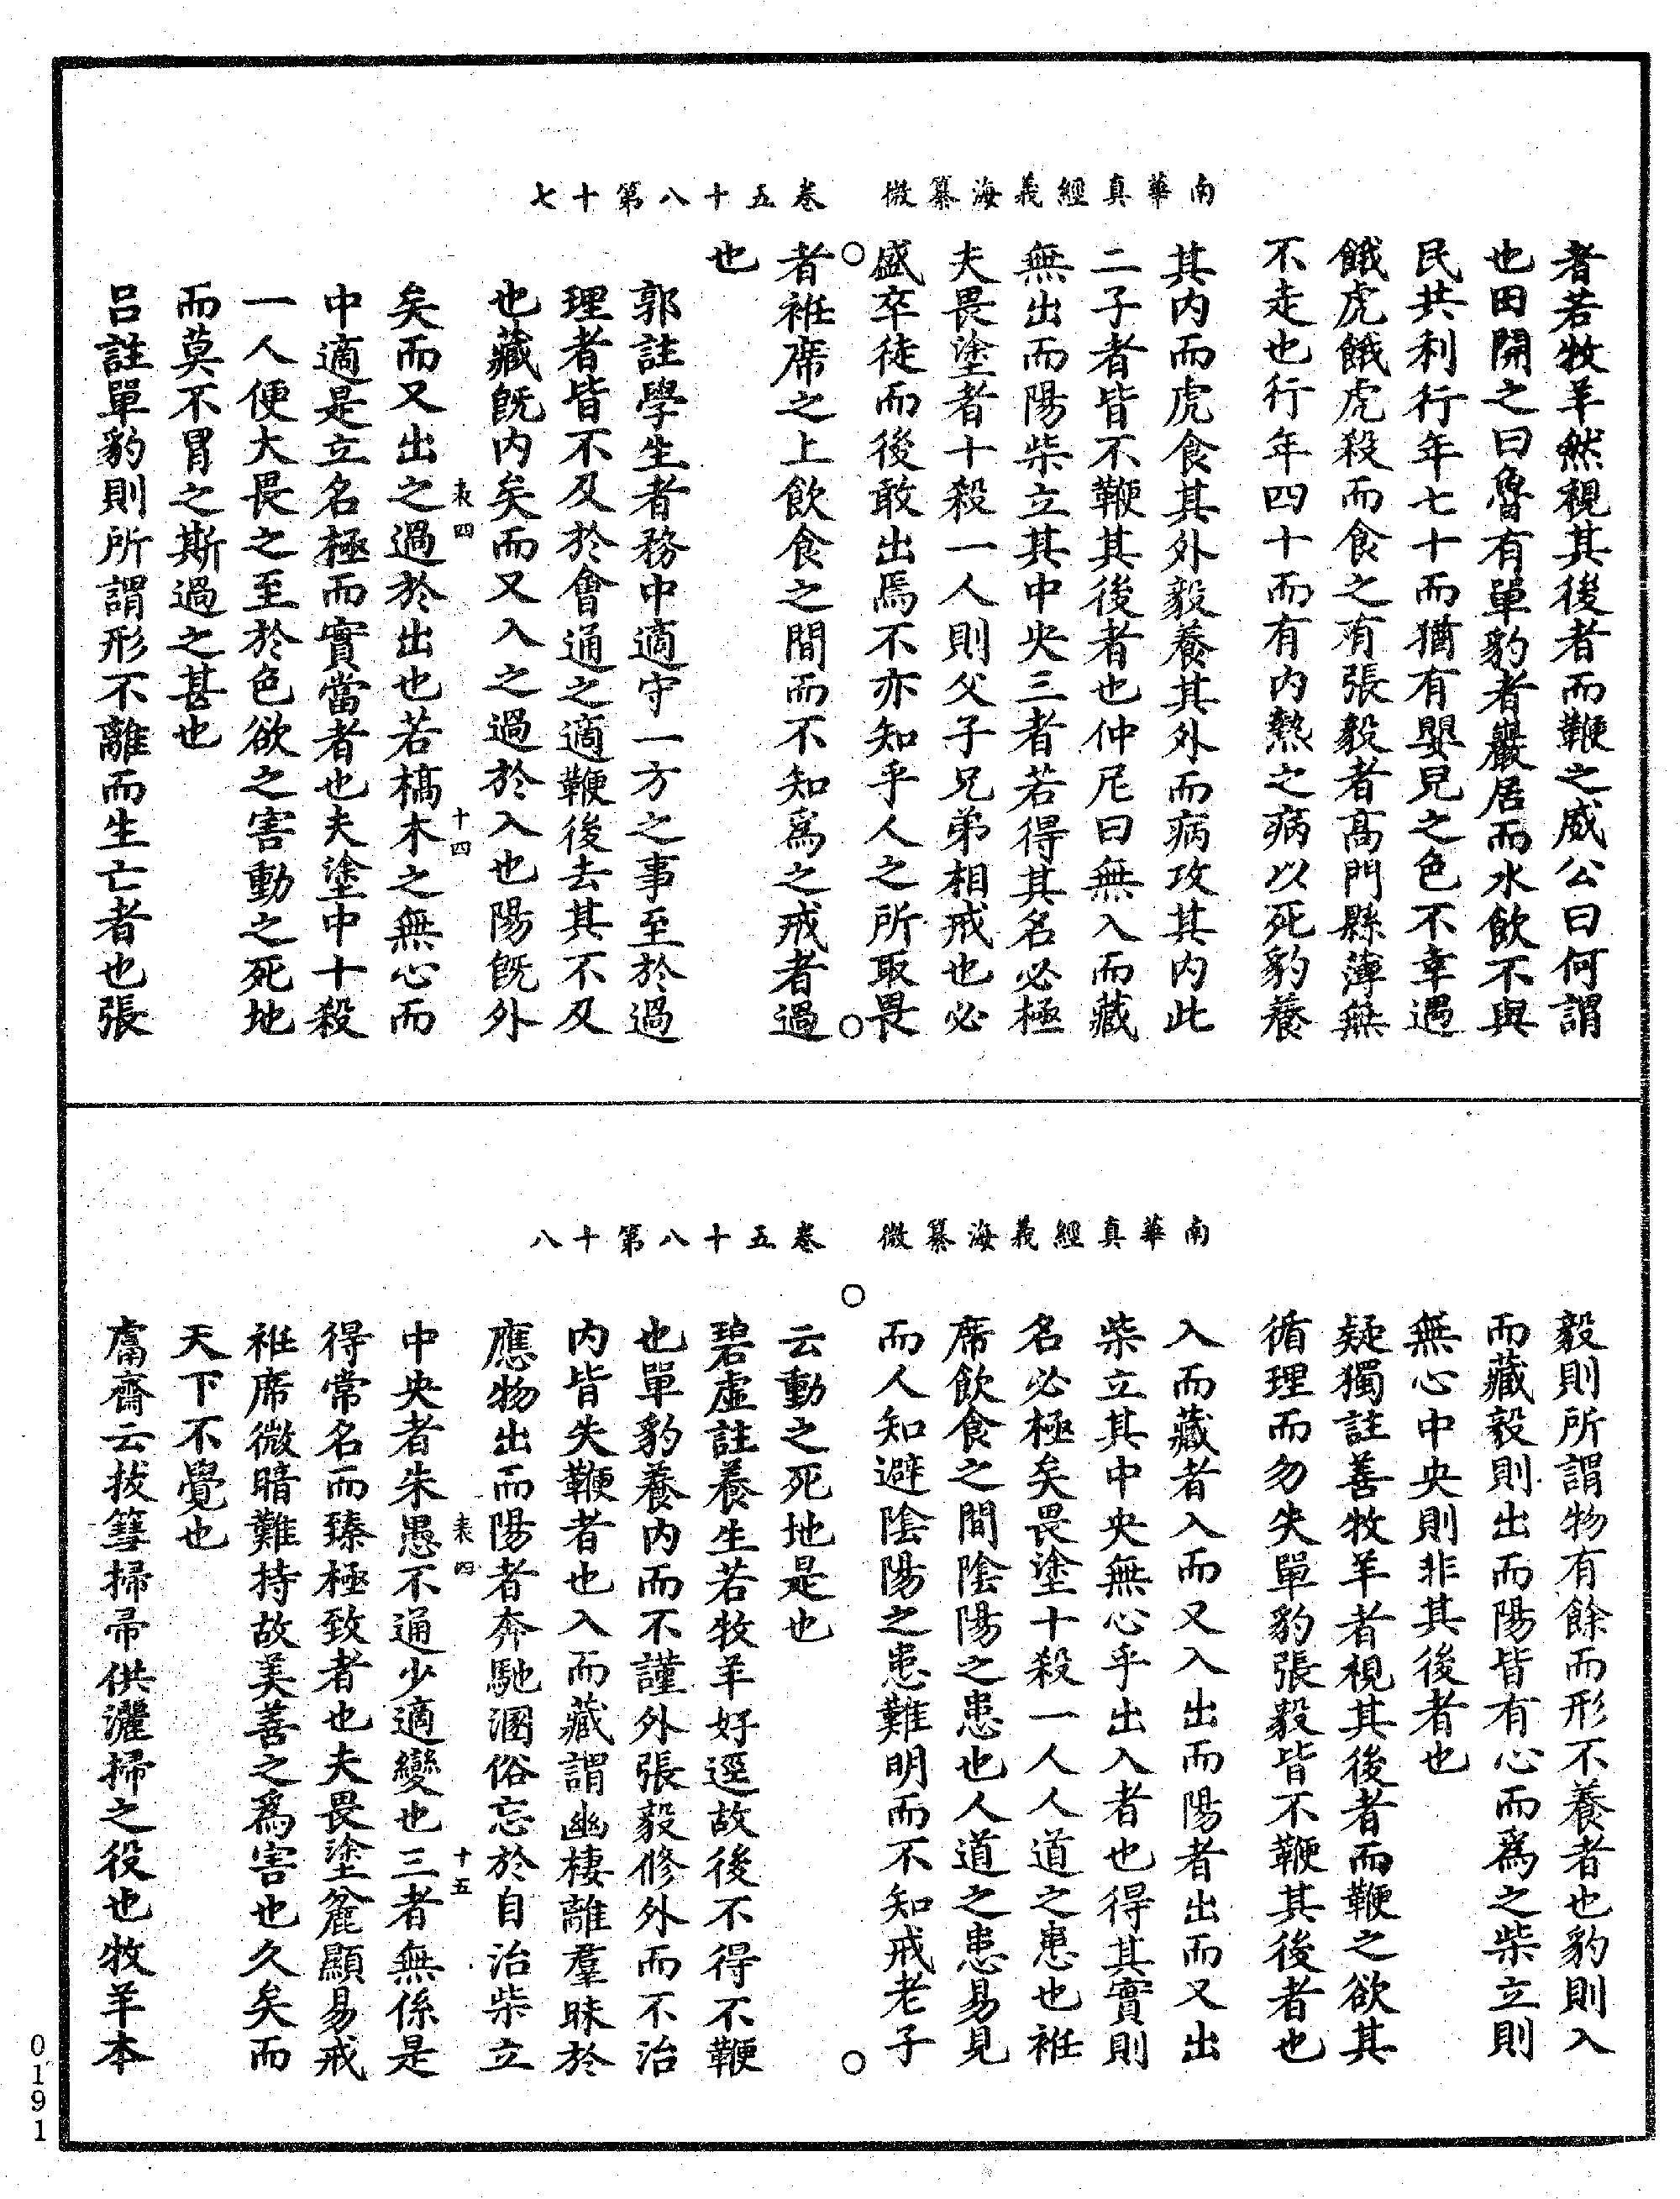 南華真經義海纂微　卷五十八第十七
者若牧羊然視其後者而鞭之威公曰何謂
也田開之曰魯有單豹者巖居而水飲不與
民共利行年七十而猶有嬰兒之色不幸遇
餓虎餓虎殺而食之有張毅者高門縣薄無
不走也行年四十而有内熱之病以死豹養
其内而虎食其外毅養其外而病攻其内此
二子者皆不鞭其後者也仲尼曰無入而藏
無出而陽柴立其中央三者若得其名必極
夫畏塗者十殺一人則父子兄弟相戒也必
盛卒徒而後敢出焉不亦知乎人之所取畏
者袵席之上飲食之間而不知爲之戒者過
也
郭註學生者務中適守一方之事至於過
理者皆不及於會通之適鞭後去其不及
也藏旣内矣而又入之過於入也陽旣外
表四　十四
矣而又出之過於出也若槁木之無心而
中適是立名極而實當者也夫塗中十殺
一人便大畏之至於色欲之害動之死地
而莫不冒之斯過之甚也
吕註單豹則所謂形不離而生亡者也張
南華真經義海纂微　卷五十八第十八
毅則所謂物有餘而形不養者也豹則入
而藏毅則出而陽皆有心而爲之柴立則
無心中央則非其後者也
疑獨註善牧羊者視其後者而鞭之欲其
循理而勿失單豹張毅皆不鞭其後者也
入而藏者入而又入出而陽者出而又出
柴立其中央無心乎出入者也得其實則
名必極矣畏塗十殺一人人道之患也袵
席飲食之間陰陽之患也人道之患易見
而人知避陰陽之患難明而不知戒老子
云動之死地是也
碧虛註養生若牧羊好逕故後不得不鞭
也單豹養内而不謹外張毅修外而不治
内皆失鞭者也入而藏謂幽棲離羣昧於
應物出而陽者奔馳溷俗忘於自治柴立
表四　十五
中央者朱愚不通少適變也三者無係是
得常名而臻極致者也夫畏塗麄顯易戒
袵席微暗難持故美善之爲害也久矣而
天下不覺也
鬳齋云拔篲掃帚供灑掃之役也牧羊本
0191